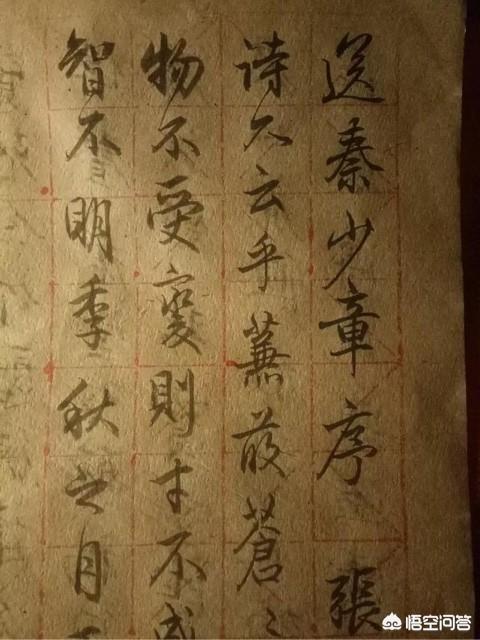 送秦少章序 張
诗不云乎蒹葭蒼〻
物不受變則才不成
智不明季秋之月
悟空问答